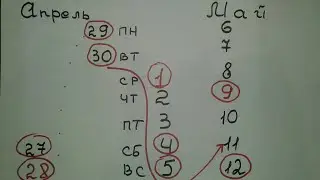 Апрель Май
29 ПН 6
30 ВТ 7
СР 1 8
ЧТ 2 9
ПТ 3 10
27 СБ 4 11
28 ВС 5 12